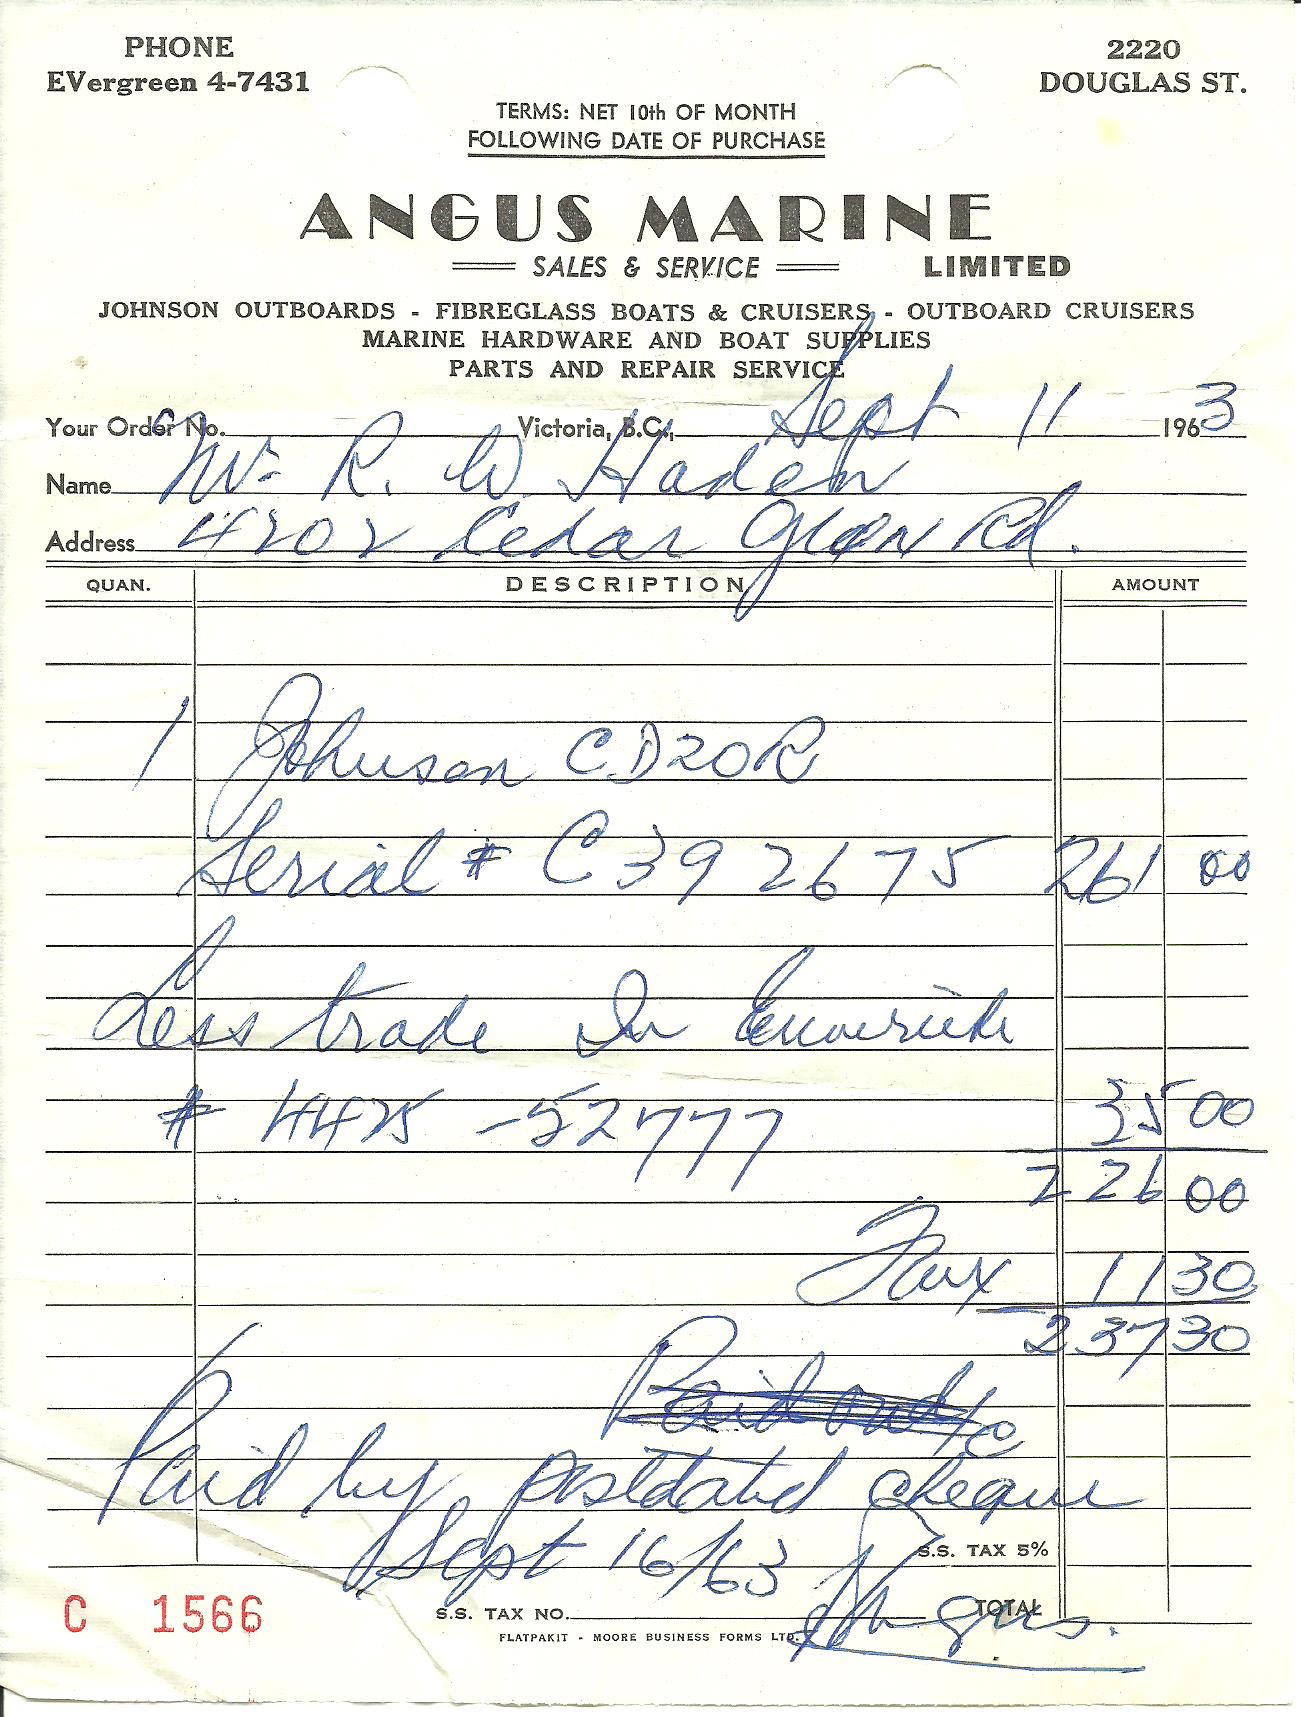 PHONE
EVergreen 4-7431
2220
DOUGLAS ST.
TERMS: NET 10th OF MONTH
FOLLOWING DATE OF PURCHASE
ANGUS MARINE
SALES & SERVICE LIMITED
JOHNSON OUTBOARDS - FIBREGLASS BOATS & CRUISERS - OUTBOARD CRUISERS
MARINE HARDWARE AND BOAT SUPPLIES
PARTS AND REPAIR SERVICE
Your Order No. Victoria, B.C., Sept 11 1963
Name Mr. R. W. Haden
Address 4202 Cedar Glen Rd.
QUAN. DESCRIPTION AMOUNT
1 Johnson CD20R
Serial # C392675 261 00
Less trade In
# 4425 - 52777 35 00
226 00
Tax 11 30
237 30
Paid
Paid by postdated cheque
Sept 16/63 S.S. TAX 5%
C 1566 S.S. TAX NO. TOTAL
Angus.
FLATPAKIT - MOORE BUSINESS FORMS LTD.